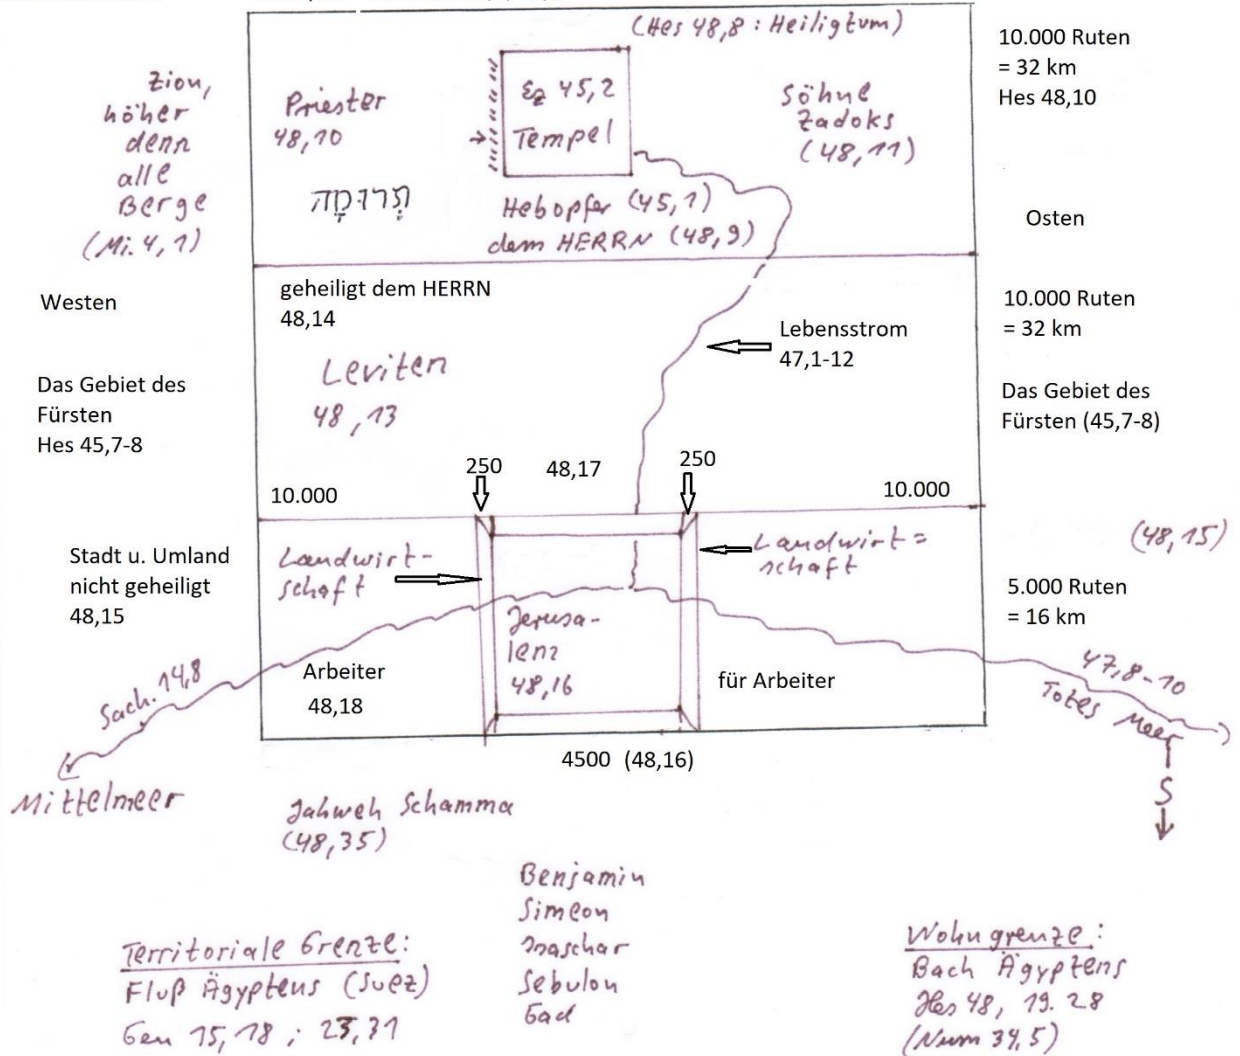 (Hes 48,8 : Heiligtum)
10.000 Ruten
= 32 km
Hes 48,10
Zion,
höher
denn
alle
Berge
(Mi. 4,1)
Priester
48,10
תְּרוּמָה
Ez 45,2
Tempel
Söhne
Zadoks
(48,11)
Hebopfer (45,1)
dem HERRN (48,9)
Osten
Westen
geheiligt dem HERRN
48,14
10.000 Ruten
= 32 km
Lebensstrom
47,1-12
Leviten
48,13
Das Gebiet des
Fürsten
Hes 45,7-8
Das Gebiet des
Fürsten (45,7-8)
250
48,17
250
10.000
10.000
Stadt u. Umland
nicht geheiligt
48,15
Landwirt-
schaft
Landwirt=
schaft
(48,15)
5.000 Ruten
= 16 km
Jerusa-
lem
48,16
Arbeiter
48,18
für Arbeiter
Sach. 14,8
47,8-10
Totes Meer
4500 (48,16)
S
Mittelmeer
Jahweh Schamma
(48,35)
Benjamin
Simeon
Isaschar
Sebulon
Gad
Territoriale Grenze:
Fluß Ägyptens (Suez)
Gen 15,18 ; 23,31
Wohngrenze:
Bach Ägyptens
Hes 48, 19. 28
(Num 34,5)